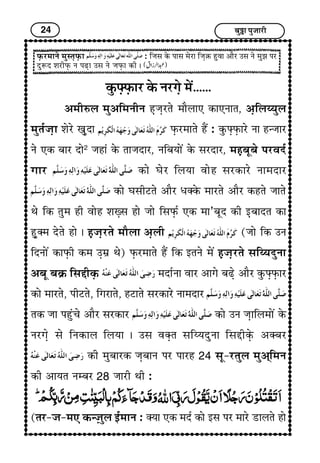 24
बुड्ढा पुजारी
फ़रमाने मुस्तफ़ा صَلَّى اللهُ تَعَالٰى عَلَيْهِ وَاٰلِهٖ وَسَلَّم : जिस के पास मेरा ज़िक्र हुवा और उस ने मुझ पर
दुरूद शरीफ़ न पढ़ा उस ने जफ़ा की ।
कुफ़्फ़ार के नरग़े में......
अमीरुल मुअमिनीन हज़रते मौलाए काएनात, अ़लिय्युल
मुर्तज़ा शेरे खुदा كَرَّمَ اللهُ تَعَالٰى وَجْهَهُ الْكَرِيْم फ़रमाते हैं : कुफ़्फ़ारे ना हन्जार
ने एक बार दो जहां के ताजदार, नबियों के सरदार, महबूबे परवर्द
गार صَلَّى اللهُ تَعَالٰى عَلَيْهِ وَاٰلِهٖ وَسَلَّم को घेर लिया वोह सरकारे नामदार
صَلَّى اللهُ تَعَالٰى عَلَيْهِ وَاٰلِهٖ وَسَلَّم को घसीटते और धक्के मारते और कहते जाते
थे कि तुम ही वोह शख़्स हो जो सिर्फ़ एक मा'बूद की इबादत का
हुक्म देते हो । हज़रते मौला अ़ली كَرَّمَ اللهُ تَعَالٰى وَجْهَهُ الْكَرِيْم (जो कि उन
दिनों काफ़ी कम उम्र थे) फ़रमाते हैं कि इतने में हज़रते सय्यिदुना
अबू बक्र सिद्दीक़ رَضِيَ اللهُ تَعَالٰى عَنْهُ मर्दाना वार आगे बढ़े और कुफ़्फ़ार
को मारते, पीटते, गिराते, हटाते सरकारे नामदार صَلَّى اللهُ تَعَالٰى عَلَيْهِ وَاٰلِهٖ وَسَلَّم
तक जा पहुंचे और सरकार صَلَّى اللهُ تَعَالٰى عَلَيْهِ وَاٰلِهٖ وَسَلَّم को उन ज़ालिमों के
नरग़े से निकाल लिया । उस वक़्त सय्यिदुना सिद्दीक़े अक्बर
رَضِيَ اللهُ تَعَالٰى عَنْهُ की मुबारक ज़बान पर पारह 24 सू-रतुल मुअ्मिन
की आयत नम्बर 28 जारी थी :
اَتَقْتُلُوْنَ رَجُلًا اَنْ يَّقُوْلَ رَبِّيَ اللهُ وَقَدْ جَآءَكُمْ بِالْبَيِّنٰتِ مِنْ رَّبِّكُمْ
(तर-ज-मए कन्ज़ुल ईमान : क्या एक मर्द को इस पर मारे डालते हो